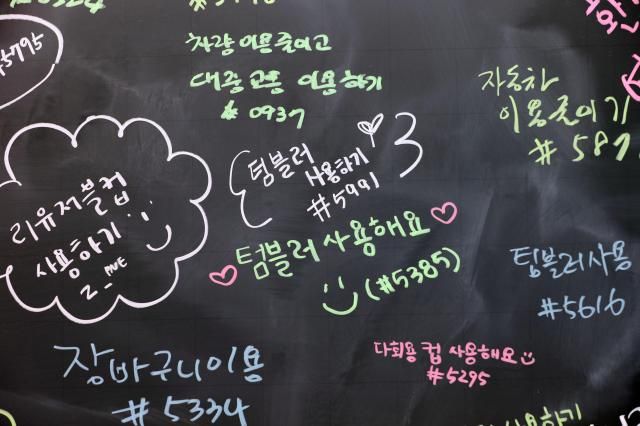 차량 이용 줄이고
대중 교통 이용하기
# 0937
자동차
이용 줄이기
# 587
텀블러
사용하기
#5991
리유저블컵
사용하기
텀블러 사용해요
(#5385)
텀블러 사용
#5616
장바구니 이용
#5334
다회용 컵 사용해요
#5295
사용하기